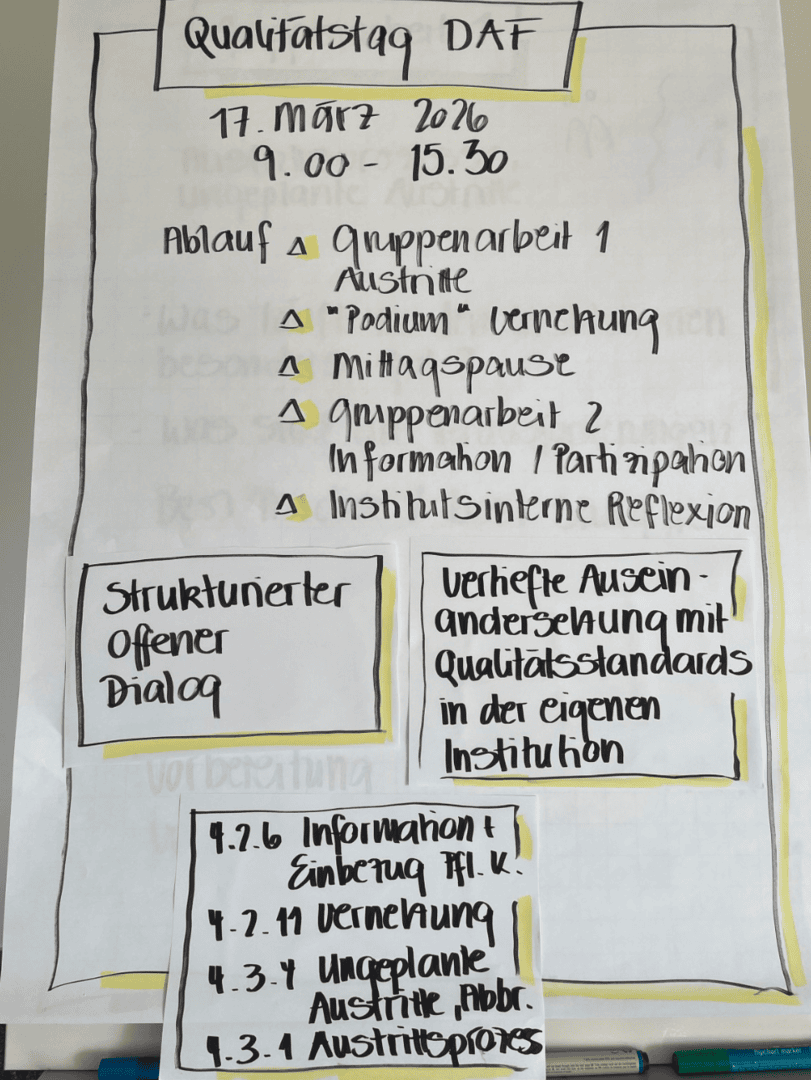 Qualitätstag DAF
17. März 2026
9.00 - 15.30
Ablauf △ Gruppenarbeit 1
Austritte
△ "Podium" Vernetzung
△ Mittagspause
△ Gruppenarbeit 2
Information / Partizipation
△ Institutsinterne Reflexion
Strukturierter
Offener
Dialog
Vertiefte Ausein-
andersetzung mit
Qualitätsstandards
in der eigenen
Institution
vorbereitung
4.2.6 Information +
Einbezug Pfl. K.
4.2.11 Vernetzung
4.3.4 Ungeplante
Austritte, Abbr.
4.3.1 Austrittsprozess